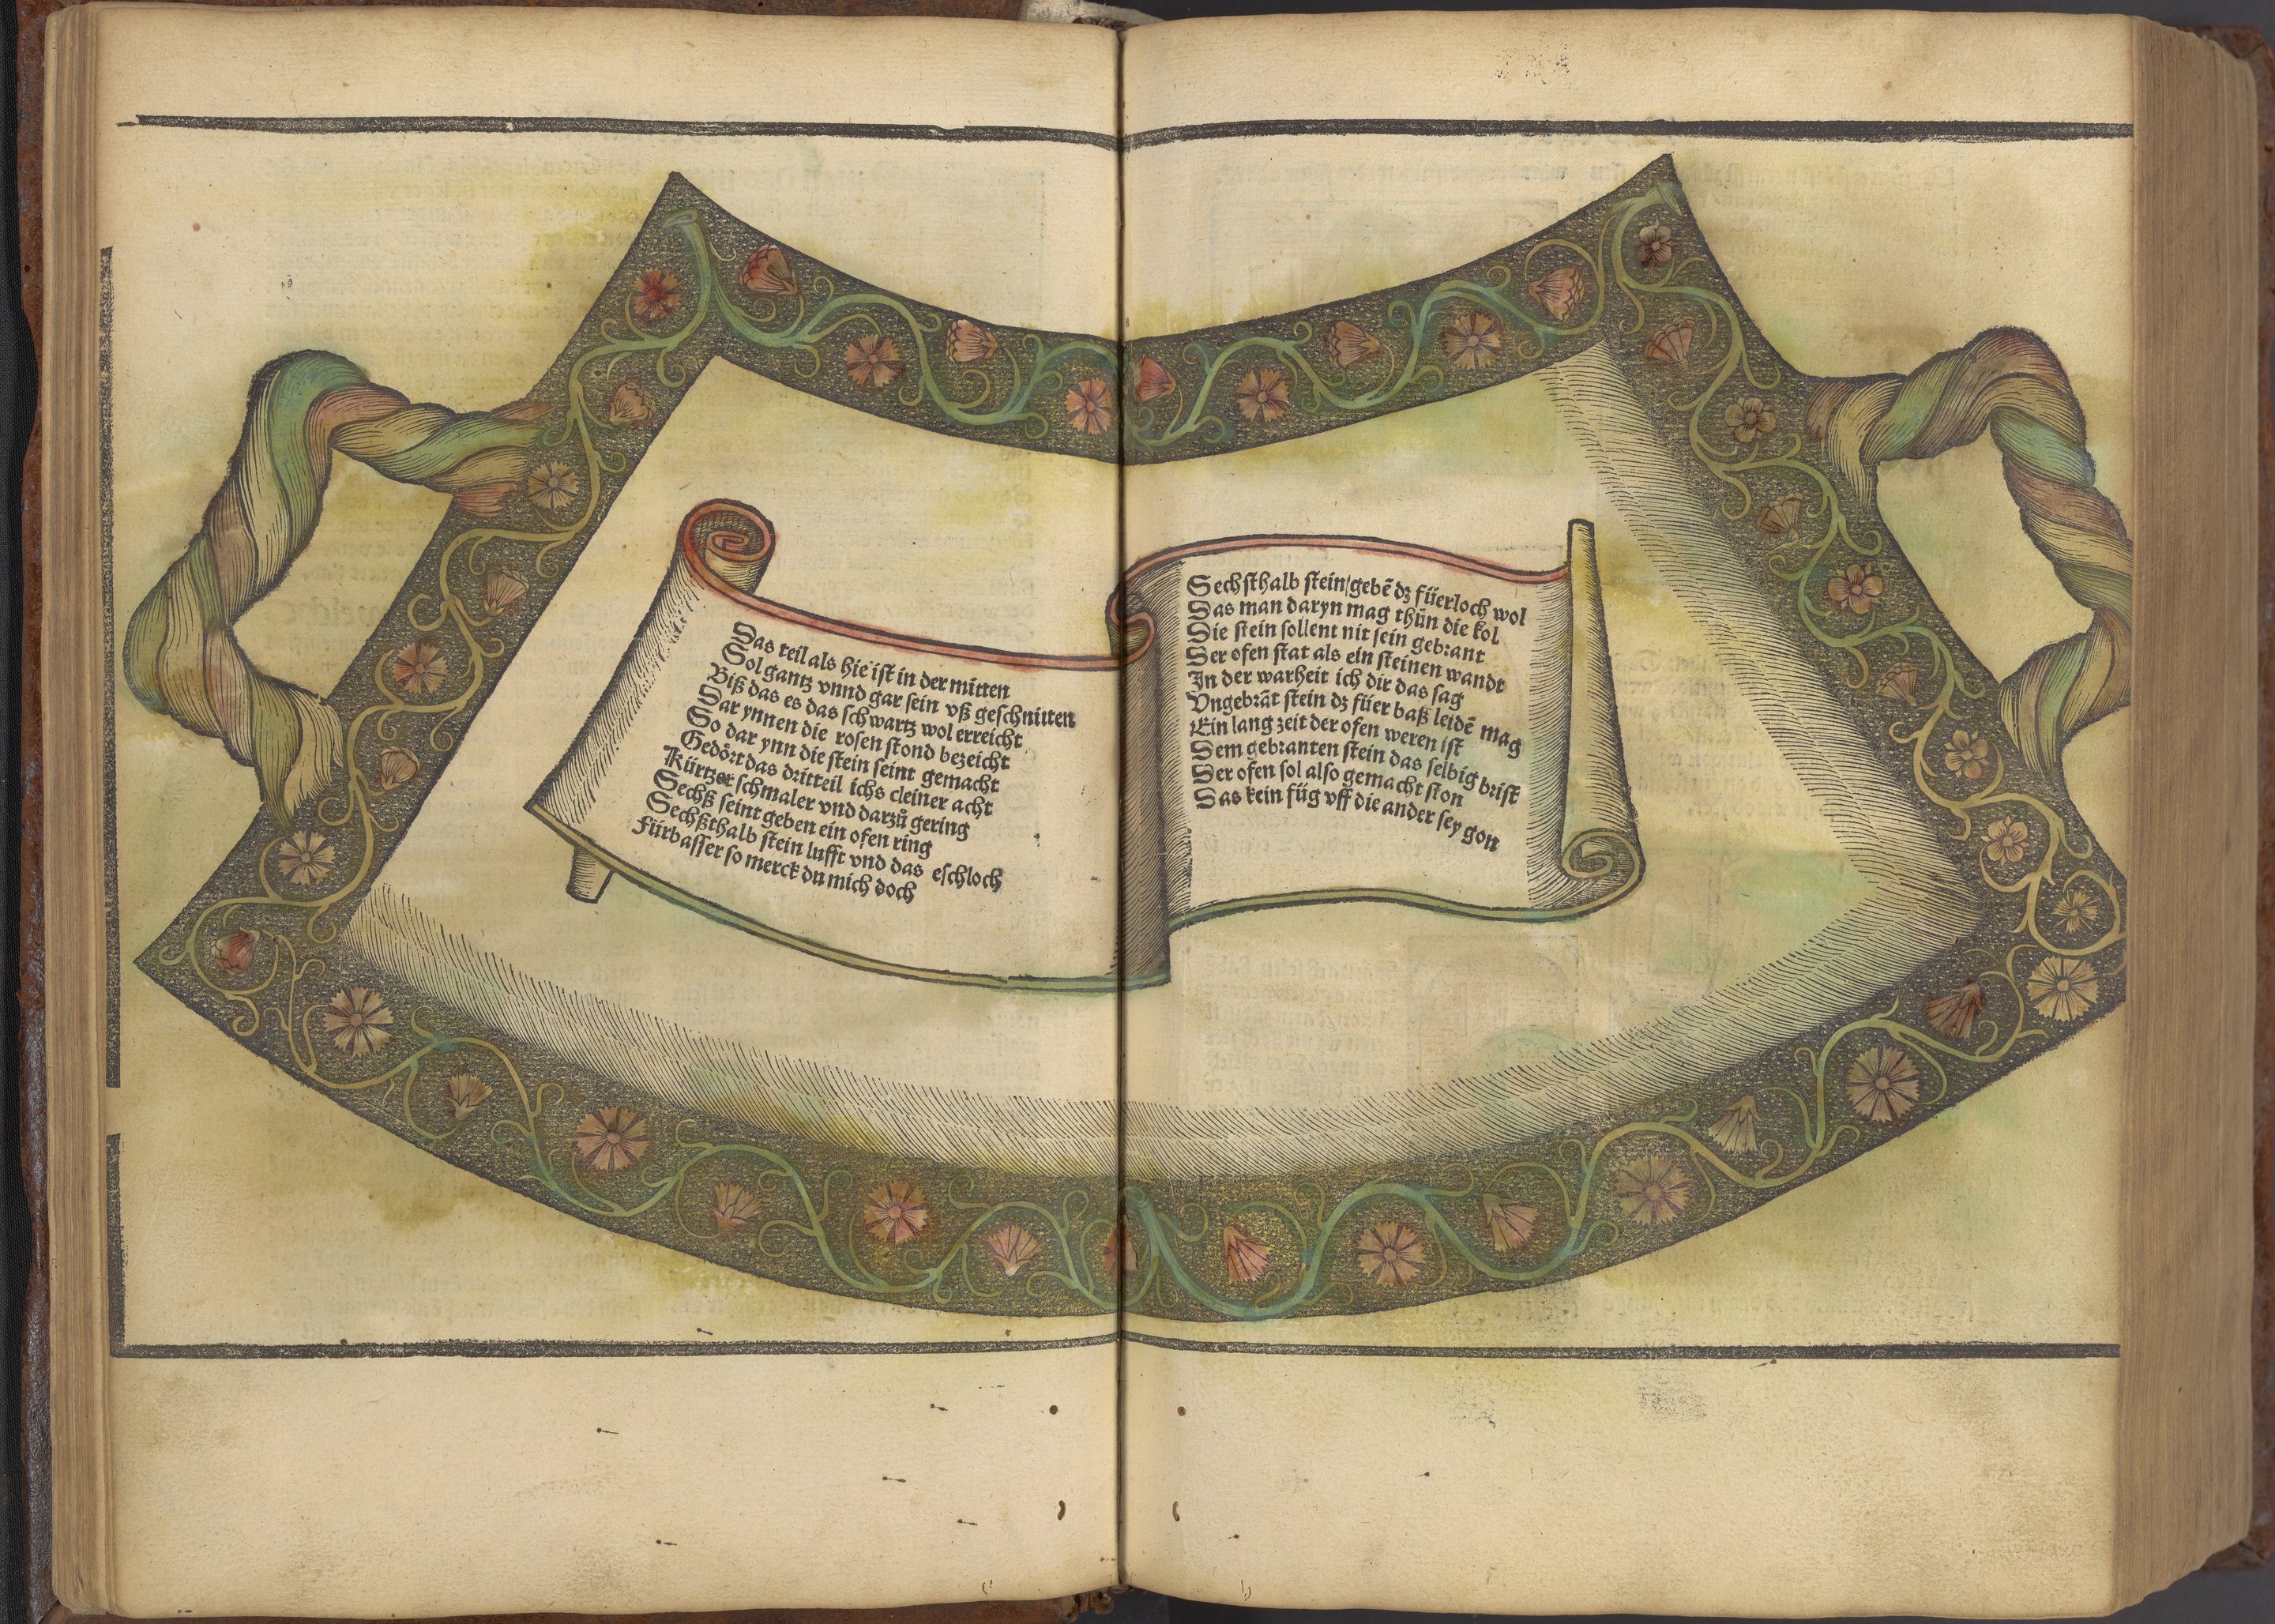 Das teil als hie ist in der mitten
Sol gantz vnnd gar sein vß geschnitten
Biß das es das schwartz wol erreicht
Dar ynnen die rosen stond bezeicht
So dar ynn die stein seint gemacht
Gedört das dritteil ichs cleiner acht
Kürtzer schmaler vnd darzů gering
Sechß seint geben ein ofen ring
Sechßthalb stein lufft vnd das eschloch
Fürbasser so merck du mich doch
Sechsthalb stein/gebē dz füerloch wol
Das man daryn mag thůn die kol
Die stein sollent nit sein gebrant
Der ofen stat als ein steinen wandt
In der warheit ich dir das sag
Vngebrāt stein dz füer baß leidē mag
Ein lang zeit der ofen weren ist
Dem gebranten stein das selbig brist
Der ofen sol also gemacht ston
Das kein füg vff die ander sey gon